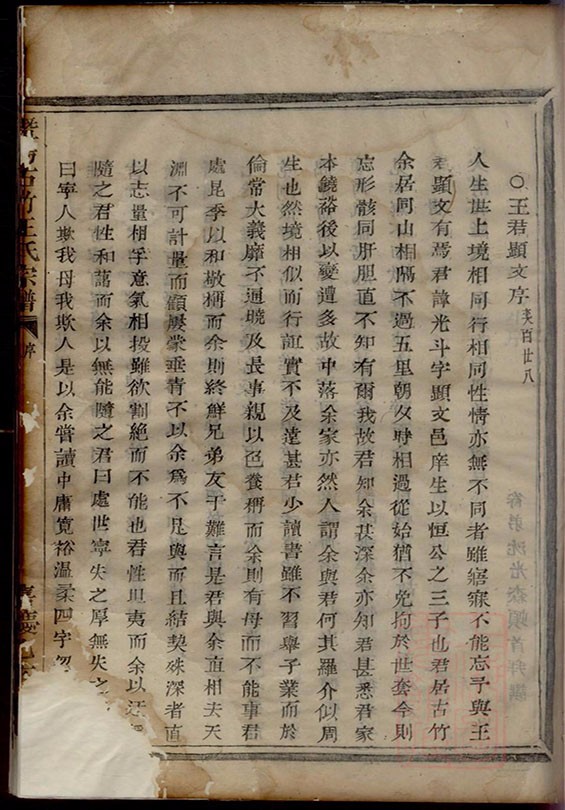 ○王君顯文序
人生世上境相同行相同性情亦無不同者雖寤寐不能忘予與王
君顯文有焉君諱光斗字顯文邑庠生以恒公之三子也君居古竹
余居同山相隔不過五里朝夕時相過從始猶不免拘於世套今則
忘形骸同肝胆直不知有爾我故君知余甚深余亦知君甚悉君家
本饒裕後以變遭多故中落余家亦然人謂余與君何其羅介似周
生也然境相似而行誼實不及遠甚君少讀書雖不習舉子業而於
倫常大義靡不通曉及長事親以色養稱而余則有母而不能事君
處昆季以和敬稱而余則終鮮兄弟友于難言是君與余直相去天
淵不可計量而顧屡蒙垂青不以余為不足與而且結契殊深者直
以志量相孚意氣相投雖欲割絶而不能也君性坦夷而余以迂
隨之君性和藹而余以無能隨之君曰處世寧失之厚無失之
曰寧人欺我母我欺人是以余嘗讀中庸寬裕温柔四字
古竹王氏宗譜
序